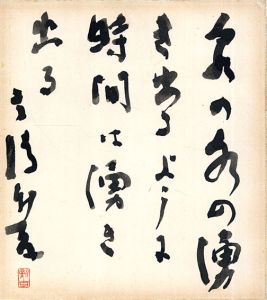 泉の水の湧
き出るように
時間は湧き
出る